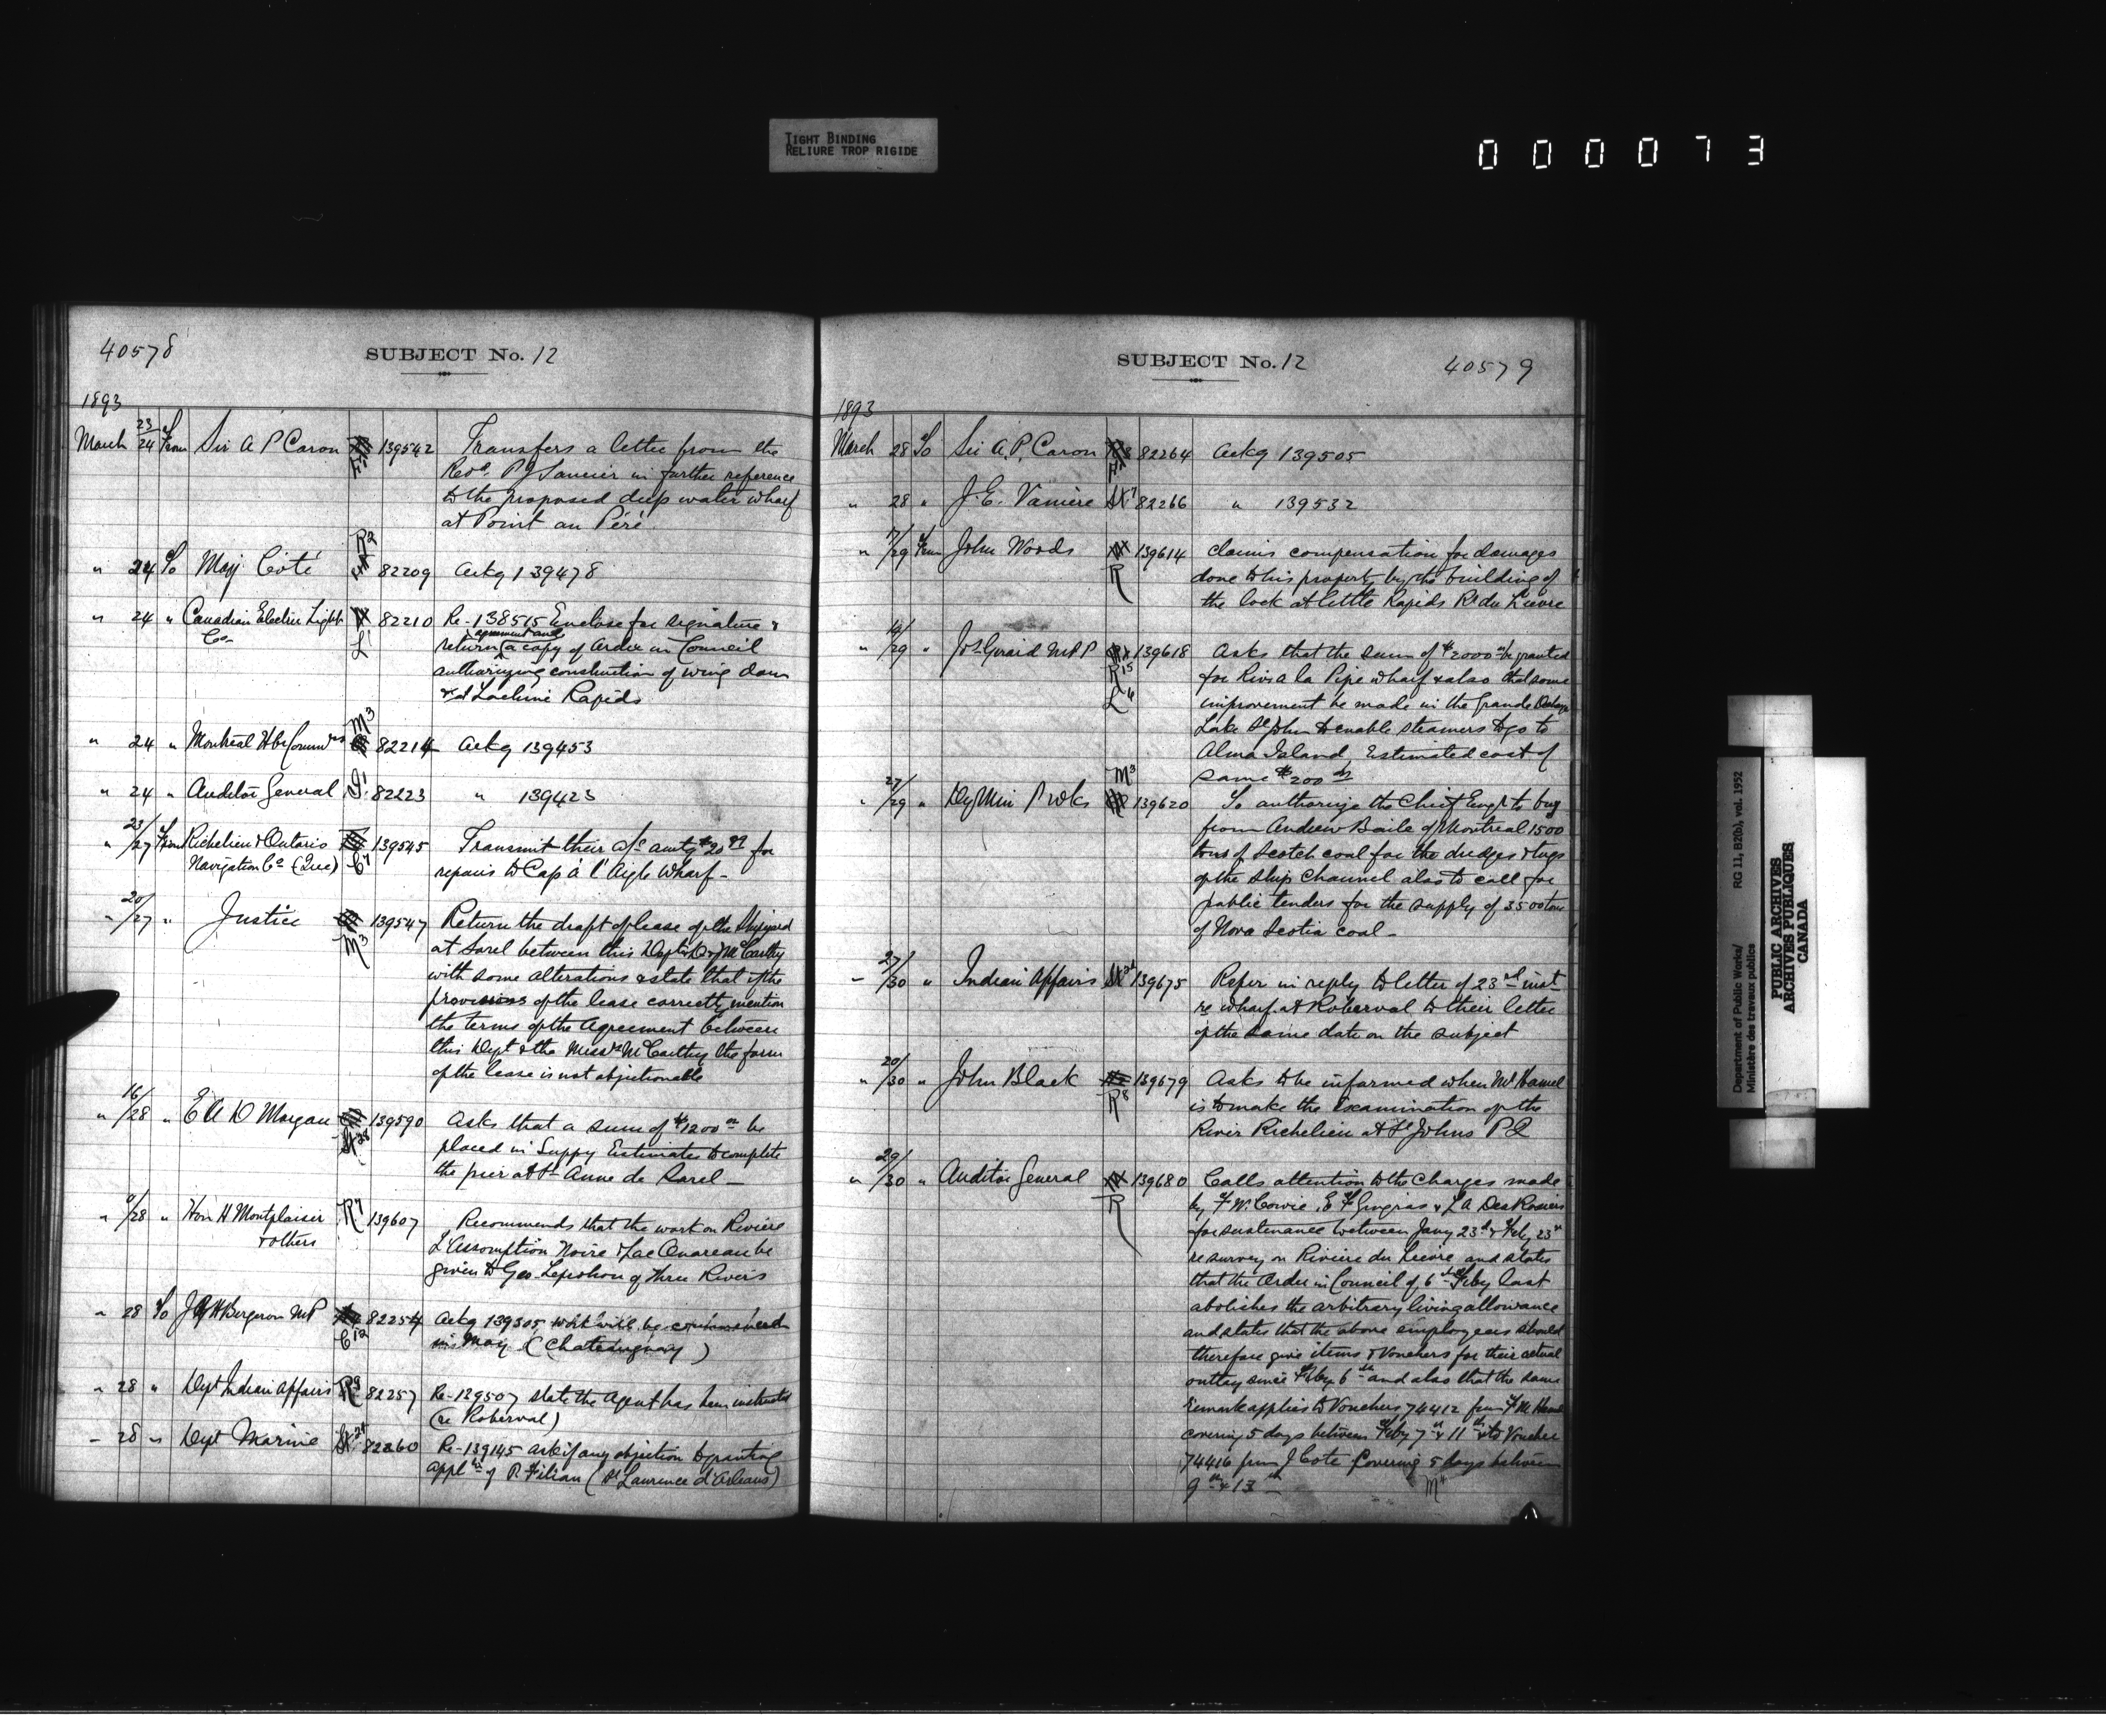 TIGHT BINDING
RELIURE TROP RIGIDE
000073
40578
SUBJECT No. 12
1893
March 23/24 From Sir A P Caron 139542 Transfers a letter from the
Revd. P J Saucier in further reference
to the proposed deep water wharf
at Point au Père
" 24 To Maj Côté R2 82209 Ackg 139478
" 24 " Canadian Electric Light 82210 Re-138515 Enclose for signature &
Co- L1 return agreement and a copy of Order in Council
authorizing construction of wing dam
at Lachine Rapids
M3
" 24 " Montreal Hbr Commrs 82214 Ackg 139453
" 24 " Auditor General 82223 " 139423
" 23/27 From Richelieu & Ontario 139545 Transmit their a/c amtg $20 for
Navigation Co (Quc) C7 repairs to Cap à l'Aigle Wharf-
" 20/27 " Justice 139547 Return the draft of lease of the Shipyard
M3 at Sorel between this Dept & McCarthy
with some alterations & state that if the
provisions of the lease correctly mention
the terms of the Agreement between
this Dept & the Messrs McCarthy the form
of the lease is not objectionable
" 16/28 " E A D Morgan 139590 Asks that a sum of $1200 be
placed in Suppy Estimates to complete
the pier at St Anne de Sorel-
" 9/28 " Hon H Montplaisir R7 139607 Recommends that the work on Rivière
& others L'Assomption Noire & Lac Ouareau be
given to Geo. of Three Rivers
" 28 To Bergeron MP 82254 Ackg 139305 work will be commenced
C12 in May (Chateauguay)
" 28 " Dept Indian Affairs R9 82257 Re-139507 state the Agent has been instructed
(re Roberval)
" 28 " Dept Marine 82260 Re-139145 ask if any objection to granting
appln of P. Filian (St Laurence d'Orleans)
SUBJECT No. 12
40579
1893
March 28 To Sir A. P. Caron 82264 Ackg 139505
" 28 " J. E. Vanière 82266 " 139532
" 17/29 From John Woods 139614 Claims compensation for damages
R done to his property by the building of
the lock at little Rapids R du Lievre
" 14/29 " Jos Girard MPP 139618 Asks that the sum of $2000 be granted
R15 for Riv à la Pipe wharf & also that some
L6 improvement be made in the Grande
Lake St John to enable steamers to go to
Alma Island, Estimated cost of
M3 same $200
" 27/29 " Dy Min P Wks 139620 To authorize the Chief Engr to buy
from Andrew Baile of Montreal 1500
tons of Scotch coal for the dredges & tugs
of the ship channel also to call for
public tenders for the supply of 3500 tons
of Nova Scotia coal-
" 27/30 " Indian Affairs 139675 Refer in reply to letter of 23rd inst
re wharf at Roberval to their letter
of the same date on the subject
" 20/30 " John Black 139679 Asks to be informed when Mr Hamel
R8 is to make the Examination of the
River Richelieu at St Johns P Q
" 29/30 " Auditor General 139680 Calls attention to the Charges made
R by F W. Cowie, E F Gingras & L A DesRosiers
for sustenance between Jany 23rd & Feby 23rd
re survey on Rivière du Lievre and states
that the Order in Council of 6th Feby last
abolishes the arbitrary living allowance
and states that the above employees should
therefore give items & Vouchers for their actual
outlay since Feby 6th and also that the same
remark applies to Vouchers 74412 from
covering 5 days between Feby 7th & 11th & to Voucher
74416 from J Cote Covering 5 days between
9th & 13th
M4
Department of Public Works/
Ministère des travaux publics
RG 11, B2(b), vol. 1952
PUBLIC ARCHIVES
ARCHIVES PUBLIQUES
CANADA